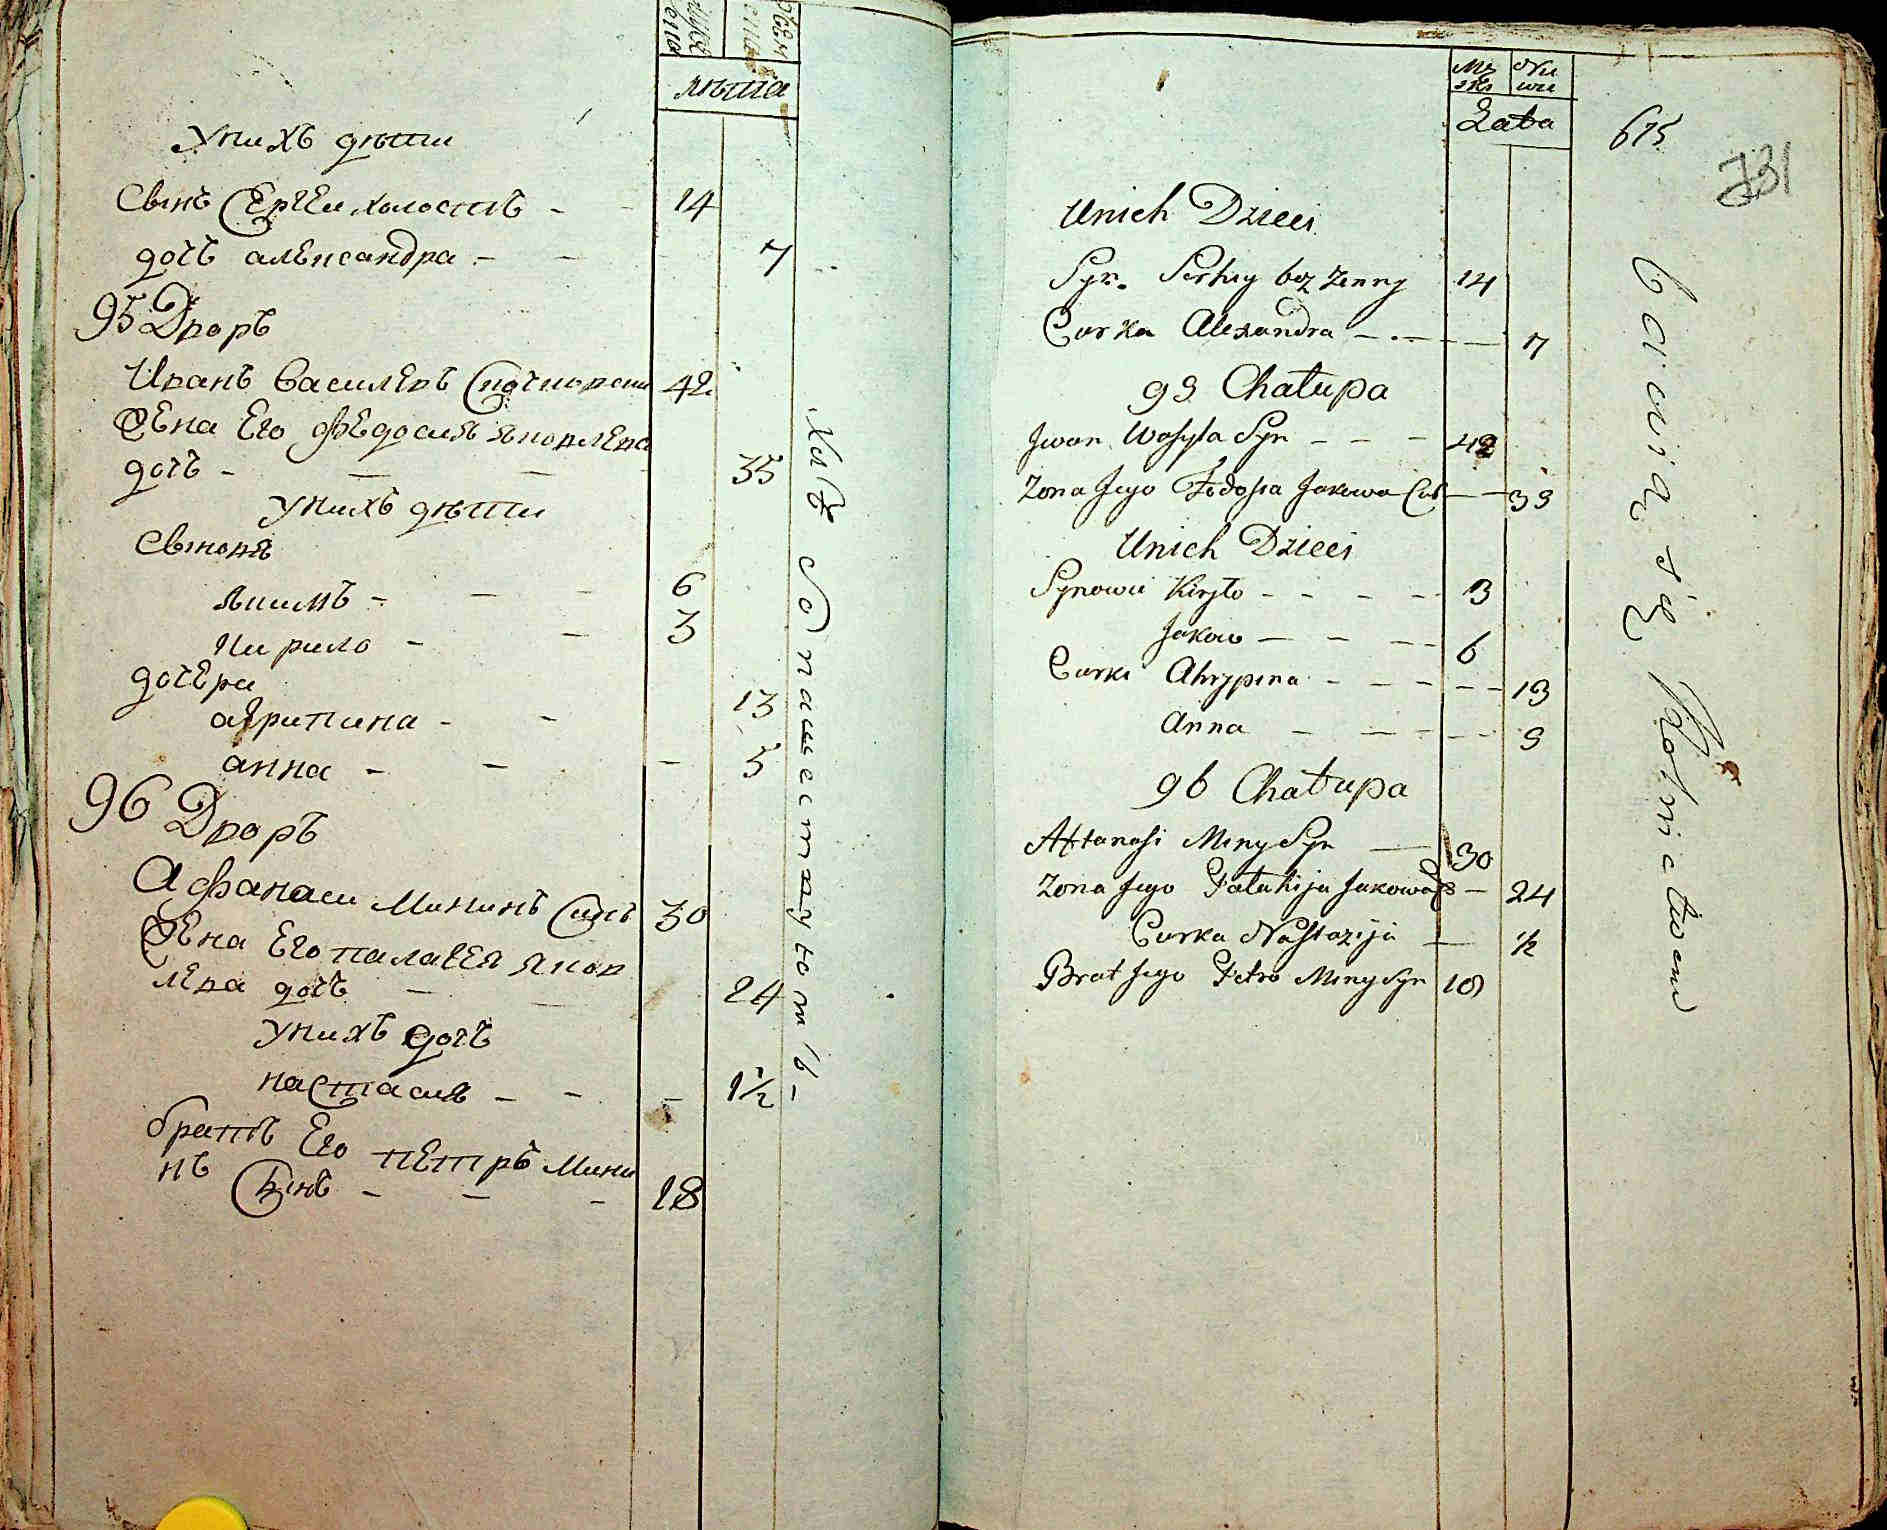 мужеска
женска
лѣта
У нихъ дѣти
Сынъ Сергеи холостъ - - 14
дочь александра - - - 7
95 Дворъ
Иванъ Василевъ 42
Жена Его Федосия яковлева
дочь - - - 35
У нихъ дѣти
Сыновя
якимъ - - - 6
кирило - - 3
дочери
агрипина - - 13
анна - - - 5
96 Дворъ
Афанаси Мининъ Синъ 30
Жена Его палагея яков
лева дочь - - 24
У нихъ дочь
настасия - - - 1½
братъ Его петръ Мини
нъ Сынъ - - - 18
Męz
skı
Niu
wu
Lata
675
731
Unich Dzieci
Syn. Serhey bez zenny 14
Curka Alexandra - - - - 7
95 Chałupa
Jwan Wasyla Syn - - - 42
Zona Jego Fedosia Jakowa Cur - - 35
Unich Dzieci
Synowie Kiryło - - - - 3
Jakow - - - - 6
Curki Ahrypina - - - - - 13
Anna - - - - - 5
96 Chałupa
Aftanasi Miny Syn - 30
Zona Jego Pałahija Jakowa - 24
Curka Nastazija - - ½
Brat Jego Petro Miny Syn 18